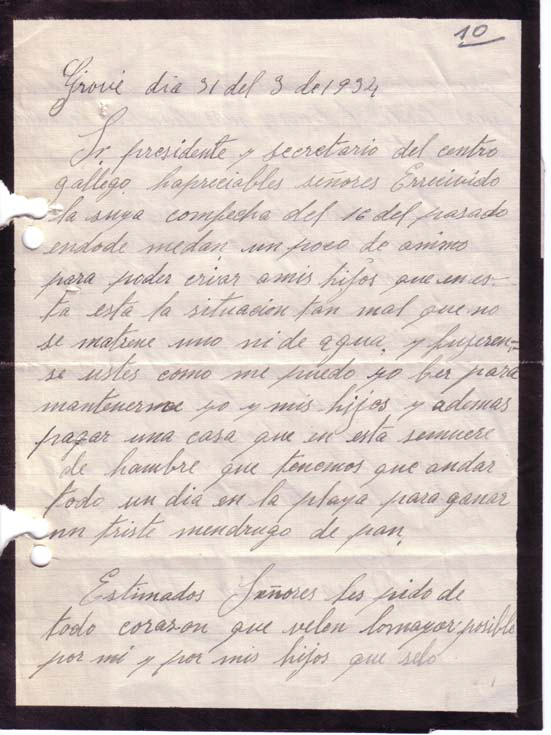 10
Grove dia 31 del 3 de 1934
Sr. presidente y secretario del centro
gallego hapreciables señores Errecivido
la suya comfecha del 16 del pasado
endode medan un poco de animo
para poder criar amis hijos que en es-
ta está la situación tan mal que no
se matrene uno ni de agua, y fijeren-
se ustes como me puedo yo ber para
mantenerme yo y mis hijos y ademas
pagar una casa que en esta semuere
de hambre que tenemos que andar
todo un dia en la playa para ganar
un triste mendrugo de pan,
Estimados Señores les pido de
todo corazon que velen lomayor posible
por mi y por mis hijos que selo